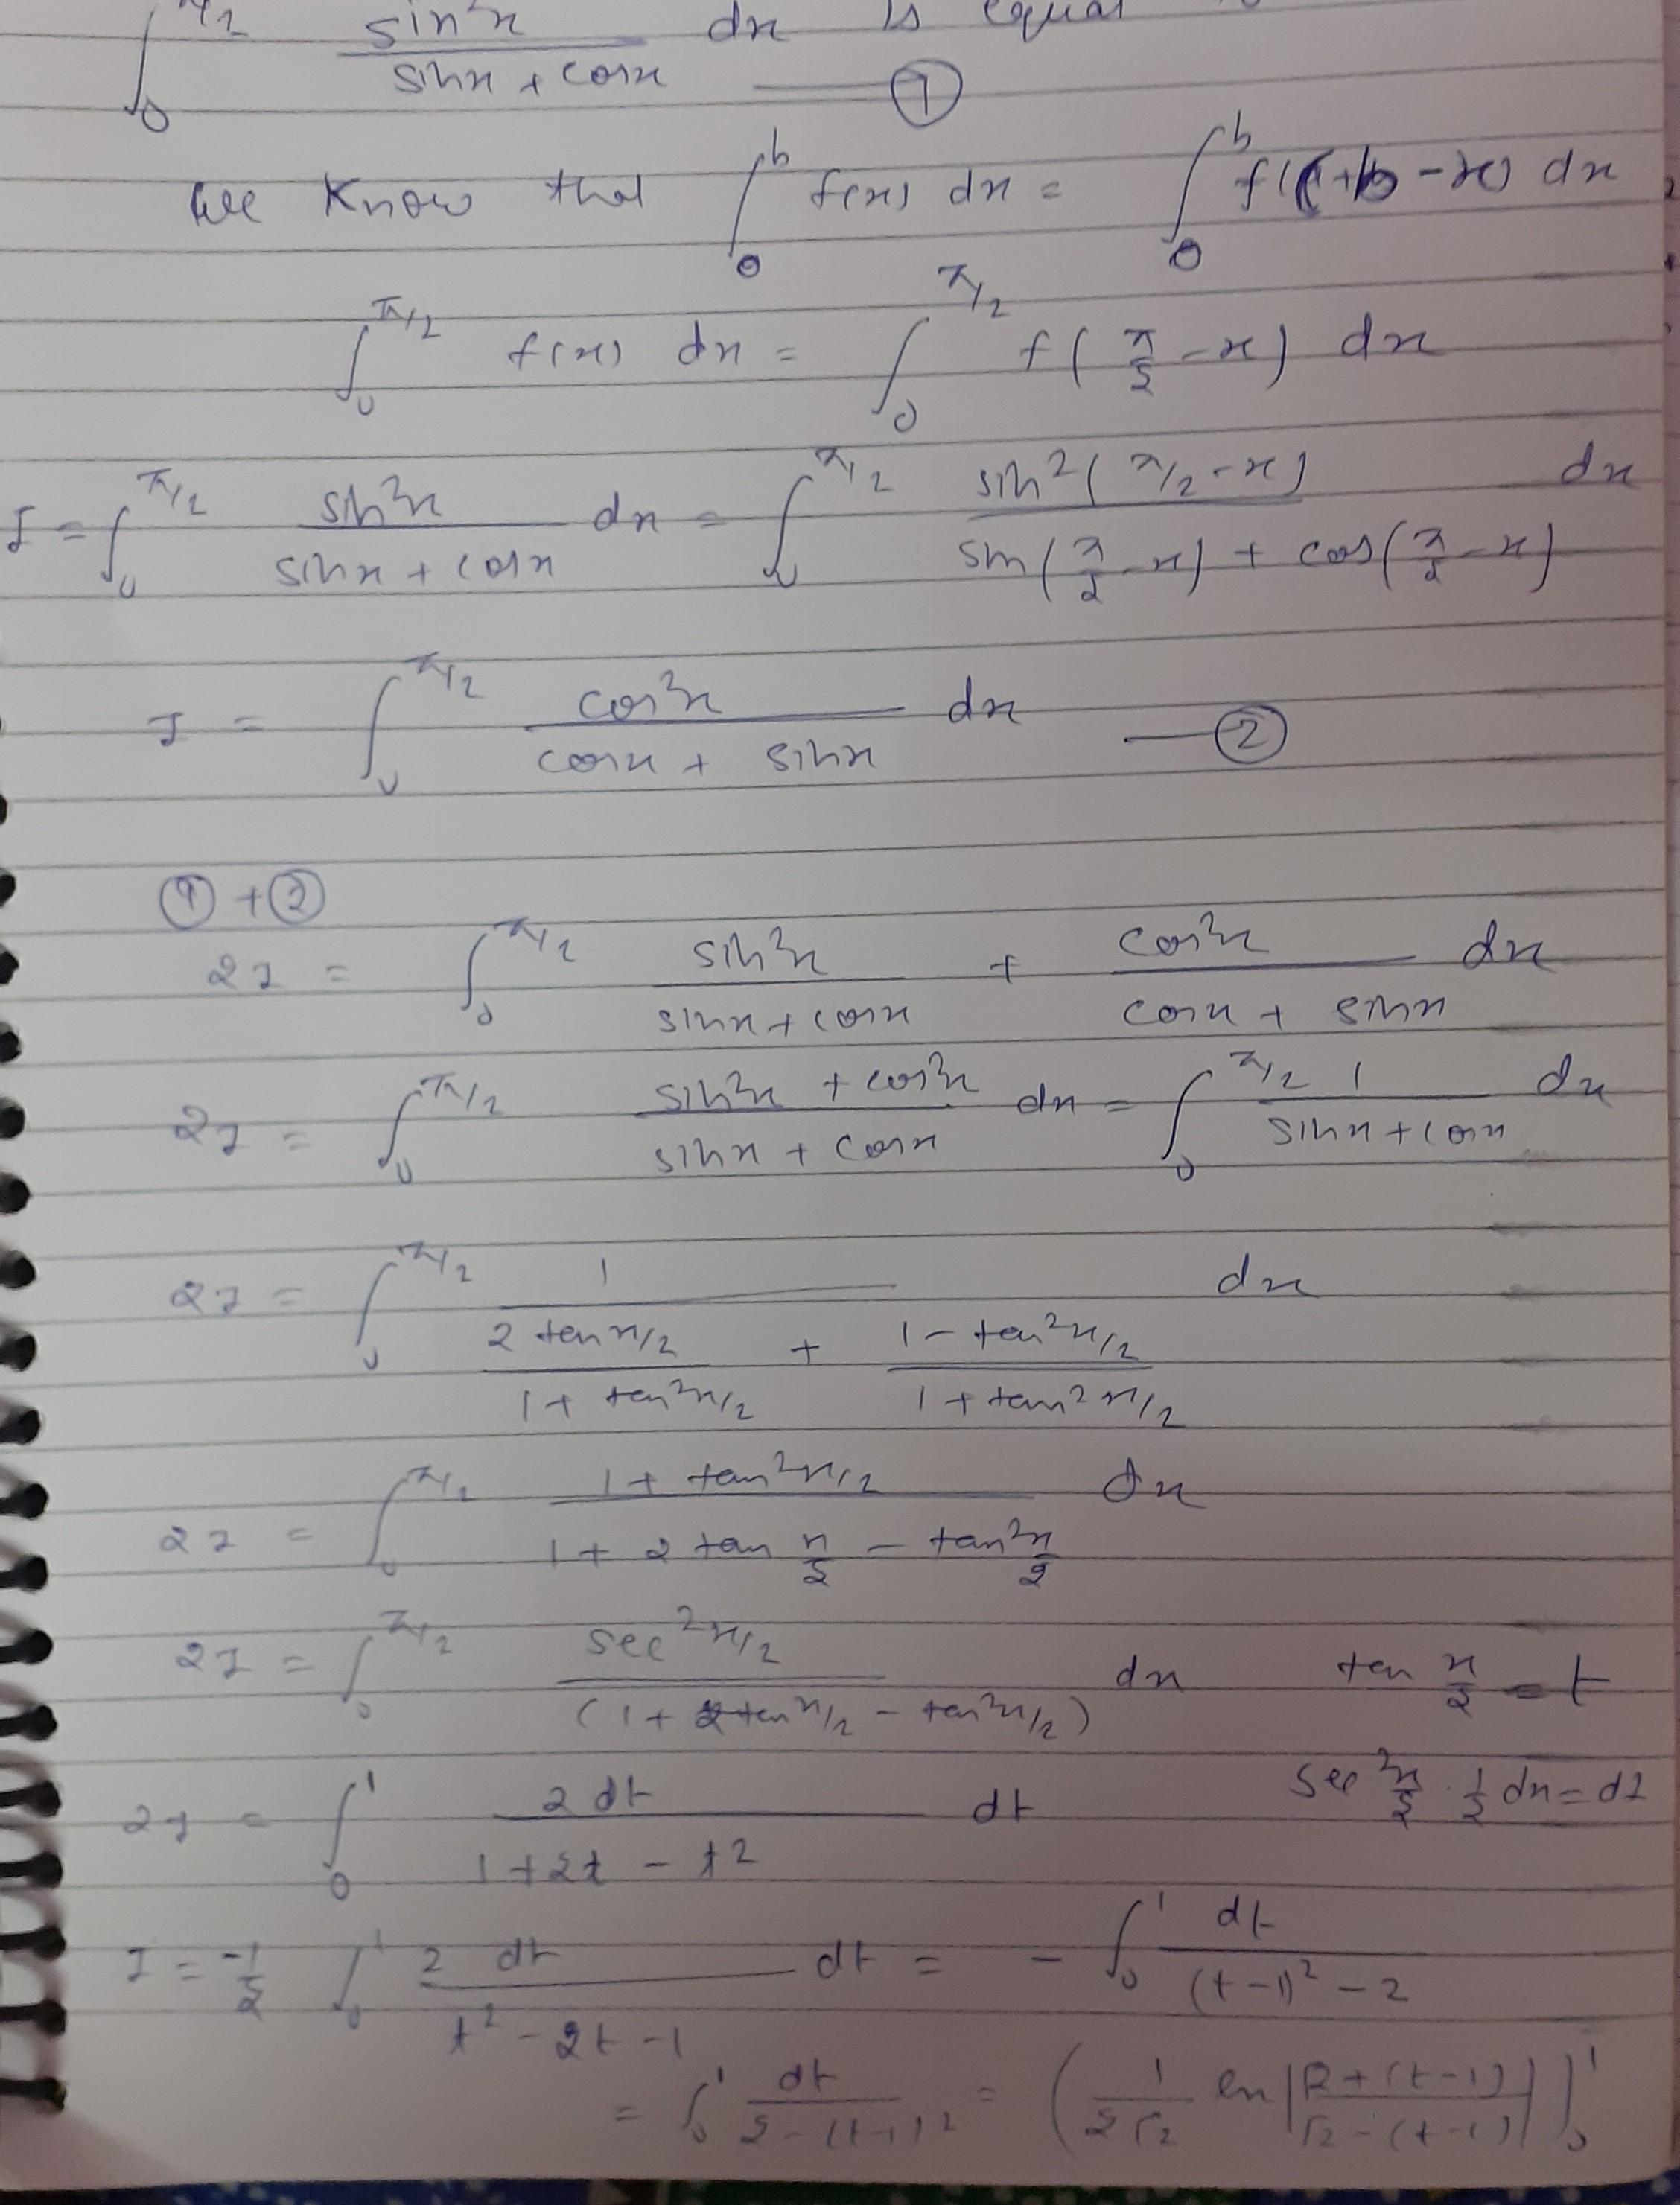 ∫₀^π/2 sin²x / (sinx + cosx) dx is equal —①
We know that ∫₀^b f(x) dx = ∫₀^b f( +b -x) dx
∫₀^π/2 f(x) dx = ∫₀^π/2 f(π/2 - x) dx
I = ∫₀^π/2 sin²x / (sinx + cosx) dx = ∫₀^π/2 sin²(π/2 - x) / (sin(π/2 - x) + cos(π/2 - x)) dx
I = ∫₀^π/2 cos²x / (cosx + sinx) dx —②
① + ②
2I = ∫₀^π/2 sin²x / (sinx + cosx) + cos²x / (cosx + sinx) dx
2I = ∫₀^π/2 (sin²x + cos²x) / (sinx + cosx) dx = ∫₀^π/2 1 / (sinx + cosx) dx
2I = ∫₀^π/2 1 / (2 tan x/2 / (1 + tan²x/2) + (1 - tan²x/2) / (1 + tan²x/2)) dx
2I = ∫₀^π/2 (1 + tan²x/2) / (1 + 2 tan x/2 - tan²x/2) dx
2I = ∫₀^π/2 sec²x/2 / (1 + 2tan x/2 - tan²x/2) dx tan x/2 = t
2I = ∫₀^1 2 dt / (1 + 2t - t²) dt sec²x/2 · 1/2 dx = dt
I = -1/2 ∫₀^1 2 dt / (t² - 2t - 1) dt = - ∫₀^1 dt / ((t-1)² - 2)
= ∫₀^1 dt / (2 - (t-1)²) = (1/(2√2) ln |(√2 + (t-1)) / (√2 - (t-1))|)₀^1